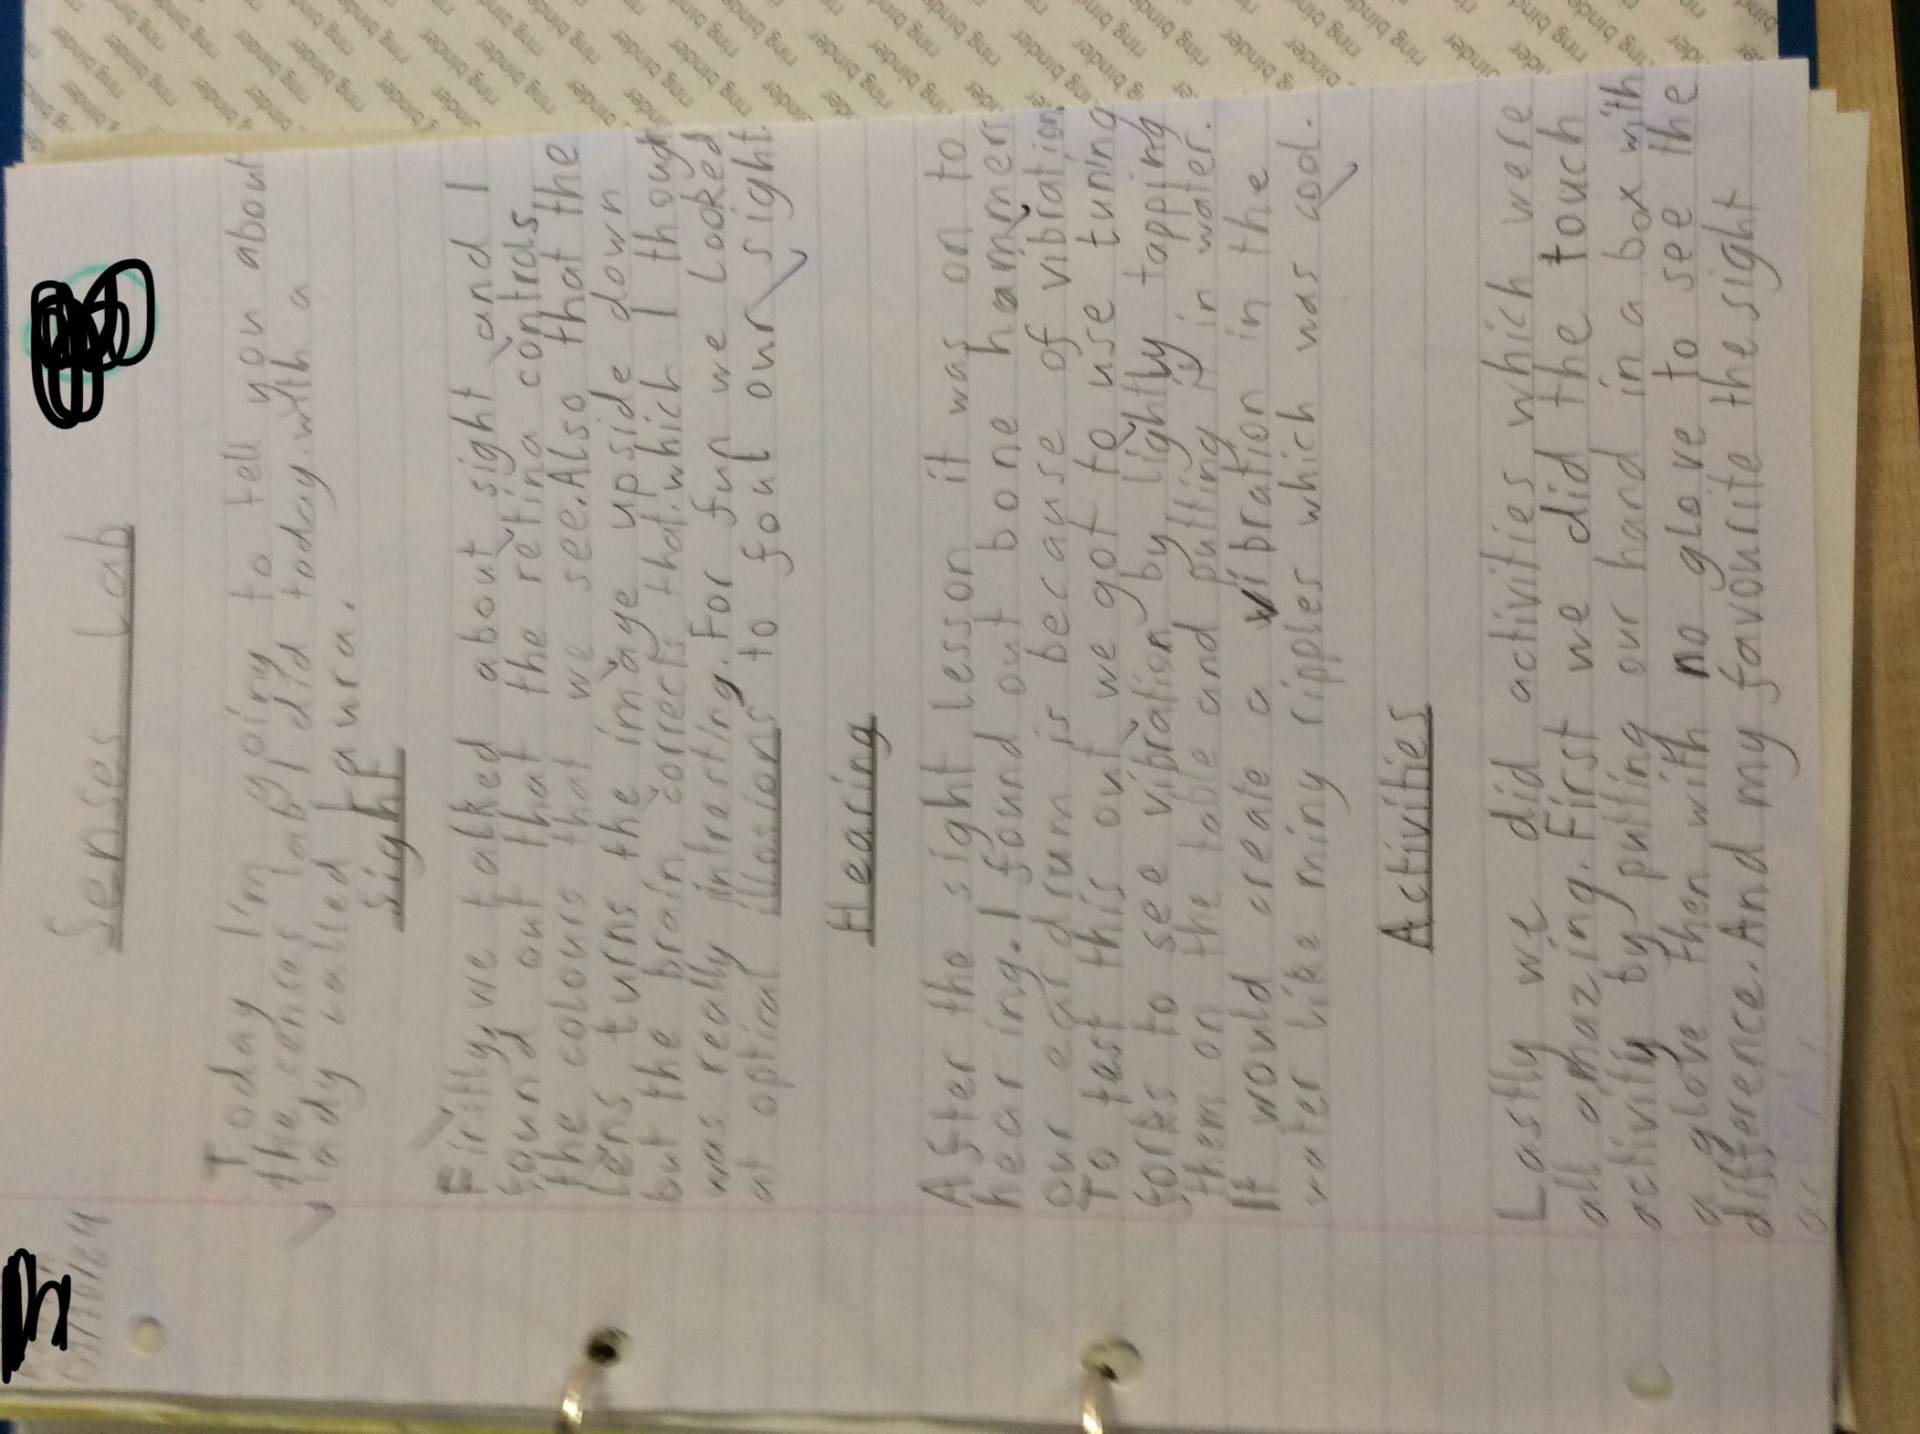 Senses Lab
Today I'm going to tell you about
the senses lab I did today. with a
lady called Lawra.
Sight
Firstly, we talked about sight and I
found out that the retina contrals
the colours that we see. Also that the
lens turns the image upside down
but the brain corrects that. which I though
was really intresting. For fun we looked
at optical illosions to fout our sight.
Hearing
After the sight lesson it was on to
hearing. I found out bone hammers
our ear drum is because of vibration.
To test this out we got to use tuning
forks to see vibration by lightly tapping
them on the table and putting it in water.
It would create a vibration in the
water like miny ripples which was cool.
Activities
Lastly we did activities which were
all amazing. First we did the touch
activity by putting our hand in a box with
a glove then with no glove to see the
difference. And my favourite the sight
ring binder